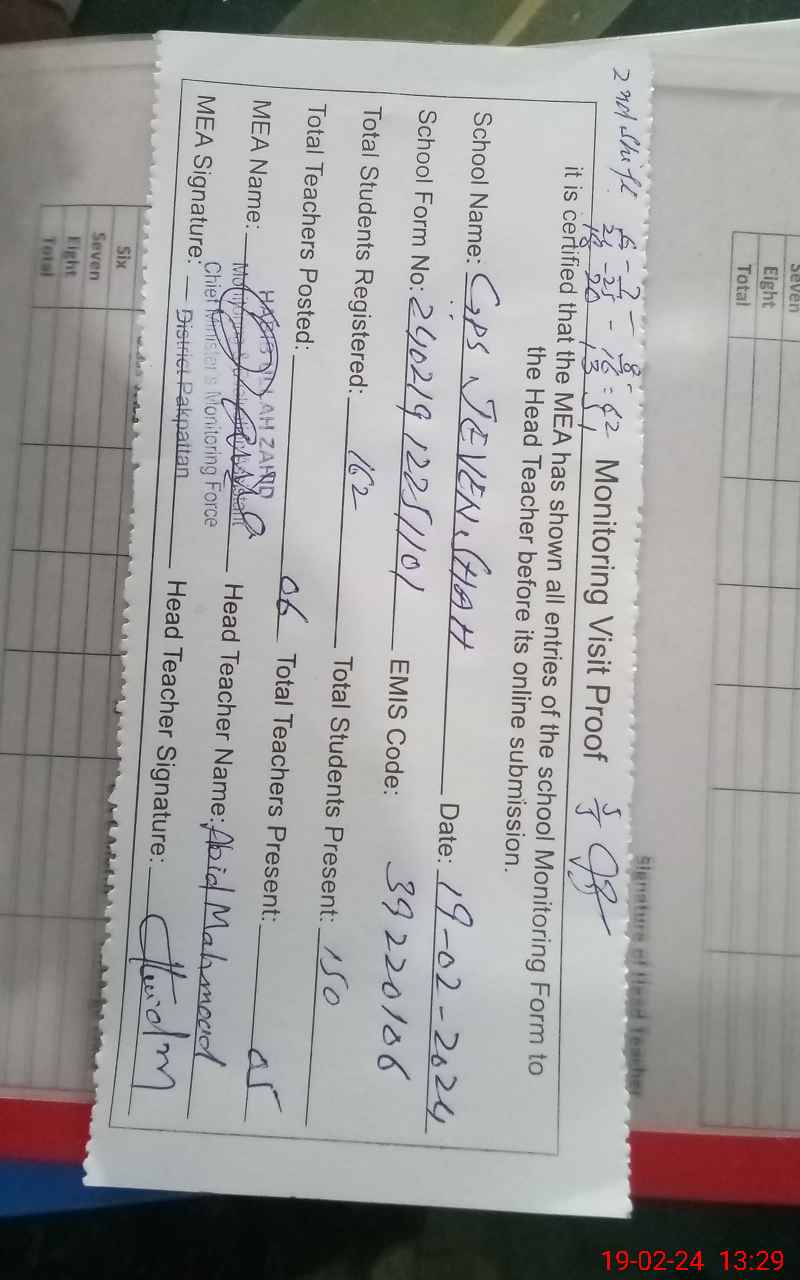 2nd shift 6 - 7 - 8 -
21 - 25 - 16 = 62
18 20 13 51
Monitoring Visit Proof
it is certified that the MEA has shown all entries of the school Monitoring Form to
the Head Teacher before its online submission.
School Name: GPS JEVEN SHAH Date: 19-02-2024
School Form No: 24021912251101 EMIS Code: 39220106
Total Students Registered: 162 Total Students Present: 150
Total Teachers Posted: 06 Total Teachers Present: 05
MEA Name: Head Teacher Name: Abid Mahmood
ZAHID
Chief Minister's Monitoring Force
District Pakpattan
MEA Signature: Head Teacher Signature:
Seven
Eight
Total
Signature of Head Teacher
Six
Seven
Eight
Total
19-02-24 13:29